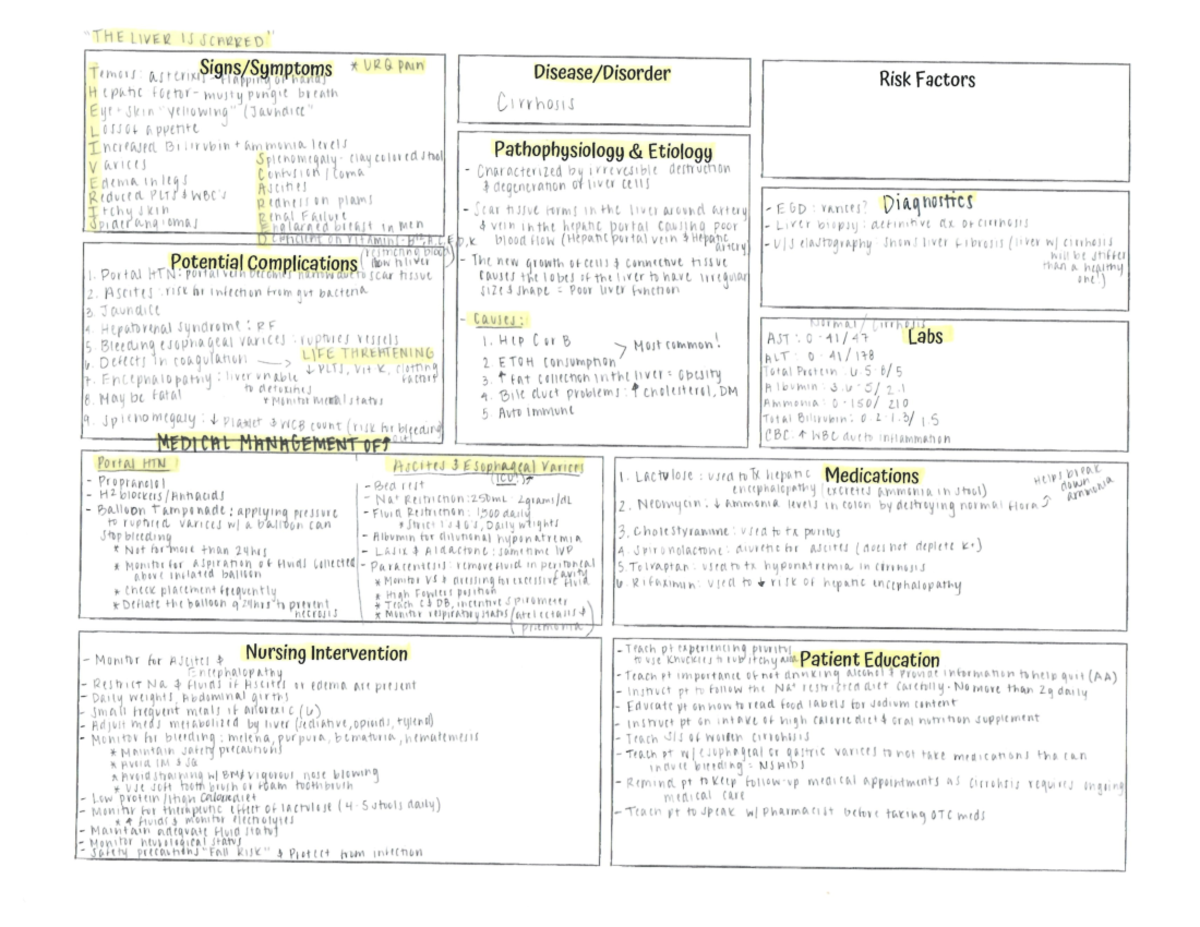 "THE LIVER IS SCARRED"
Signs/Symptoms
* URQ pain
Tremors: asterixis - flapping of hands
Hepatic foetor - musty pungie breath
Eye + skin "yellowing" (Jaundice)
Loss of appetite
Increased Bilirubin + ammonia levels
Varices
Edema in legs
Reduced PLTS & WBC's
Itchy skin
Spider angiomas
Splenomegaly - clay colored stool
Confusion / coma
Ascites
Redness on plams
Renal Failure
Englarged breast in men
Deficient on vitamins - B¹²,A,C,E,D,K
Disease/Disorder
Cirrhosis
Risk Factors
Pathophysiology & Etiology
- Characterized by irrevesible destruction
& degeneration of liver cells
- Scar tissue forms in the liver around artery
& vein in the hepatic portal causing poor
blood flow (Hepatic portal vein & Hepatic
artery)
- The new growth of cells & connective tissue
causes the lobes of the liver to have irregular
size & shape = Poor liver function
- Causes:
1. Hep C or B
2. ETOH consumption
> Most common!
3. ↑ Fat collection in the liver = Obesity
4. Bile duct problems: ↑ cholesterol, DM
5. Auto immune
Diagnostics
- EGD: varices?
- Liver biopsy: definitive dx of cirrhosis
- U/S elastography: shows liver fibrosis (liver w/ cirrhosis
will be stiffer
than a healthy
one!)
Potential Complications
(restricting blood
flow to liver)
1. Portal HTN: portal vein becomes narrow due to scar tissue
2. Ascites: risk for infection from gut bacteria
3. Jaundice
4. Hepatorenal syndrome: RF
5. Bleeding esophageal varices: ruptures vessels
6. Defects in coagulation → LIFE THREATENING
↓ PLTS, Vit K, clotting
factors
7. Encephalopathy: liver unable
to detoxifies
* Monitor mental status
8. May be fatal
9. Splenomegaly: ↓ Platlet & WCB count (risk for bleeding
out)
Labs
Normal / Cirrhosis
AST: 0-41/47
ALT: 0-41/178
Total Protein: 6.5-8/5
Albumin: 3.6-5/2.1
Ammonia: 0-150/210
Total Bilirubin: 0.2-1.3/1.5
CBC: ↑ WBC due to inflammation
MEDICAL MANAGEMENT OF↑
Portal HTN:
- Propranolol
- H² blockers/Antacids
- Balloon Tamponade: applying pressure
to ruptured varices w/ a balloon can
stop bleeding
* Not for more than 24hrs
* Monitor for aspiration of fluids collected
above inflated balloon
* Check placement frequently
* Deflate the balloon q 24hrs to prevent
necrosis
Ascites & Esophageal Varices
(ICU!)
- Bed rest
- Na+ Restriction: 250mL - 2grams/dL
- Fluid Restriction: 1500 daily
* Strict I & O's, Daily weights
- Albumin for dilutional hyponatremia
- Lasix & Aldactone: sometime IVP
- Paracentesis: remove fluid in peritoneal
cavity
* Monitor VS & dressing for excessive fluid
* High Fowlers position
* Teach C & DB, incentive spirometer
* Monitor respiratory status (atelectasis &
pnemonia)
Medications
1. Lactulose: used to Tx hepatic
encephalopathy (excretes ammonia in stool)
2. Neomycin: ↓ ammonia levels in colon by destroying normal flora
Helps break
down
ammonia
3. Cholestyramine: used to tx puritus
4. Spironolactone: diuretic for ascites (does not deplete K+)
5. Tolvaptan: used to tx hyponatremia in cirrhosis
6. Rifaximin: used to ↓ risk of hepatic encephalopathy
Nursing Intervention
- Monitor for Ascites &
Encephalopathy
- Restrict Na & fluids if Ascites or edema are present
- Daily weights, Abdominal girths
- Small frequent meals if anorexic (6)
- Adjust meds metabolized by liver (sediative, opioids, tylenol)
- Monitor for bleeding: melena, purpura, hematuria, hematemesis
* Maintain safety precautions
* Avoid IM & SQ
* Avoid straining w/ BM & vigorous nose blowing
* Use soft tooth brush or foam toothbrush
- Low protein/High calorie diet
- Monitor for therapeutic effect of lactulose (4-5 stools daily)
* ↑ fluids & monitor electrolytes
- Maintain adequate fluid status
- Monitor neurological status
- Safety precautions "Fall Risk" & Protect from infection
Patient Education
- Teach pt experiencing pruritus
to use knuckles to rub itchy area
- Teach pt importance of not drinking alcohol & Provide information to help quit (AA)
- Instruct pt to follow the Na+ restricted diet carefully. No more than 2g daily
- Educate pt on how to read food labels for sodium content
- Instruct pt on intake of high calorie diet & oral nutrition supplement
- Teach S/S of worsen cirrohsis
- Teach pt w/ esophageal or gastric varices to not take medications tha can
induce bleeding = NSAIDs
- Remind pt to keep follow-up medical appointments as cirrohsis requires ongoing
medical care
- Teach pt to speak w/ pharmacist before taking OTC meds